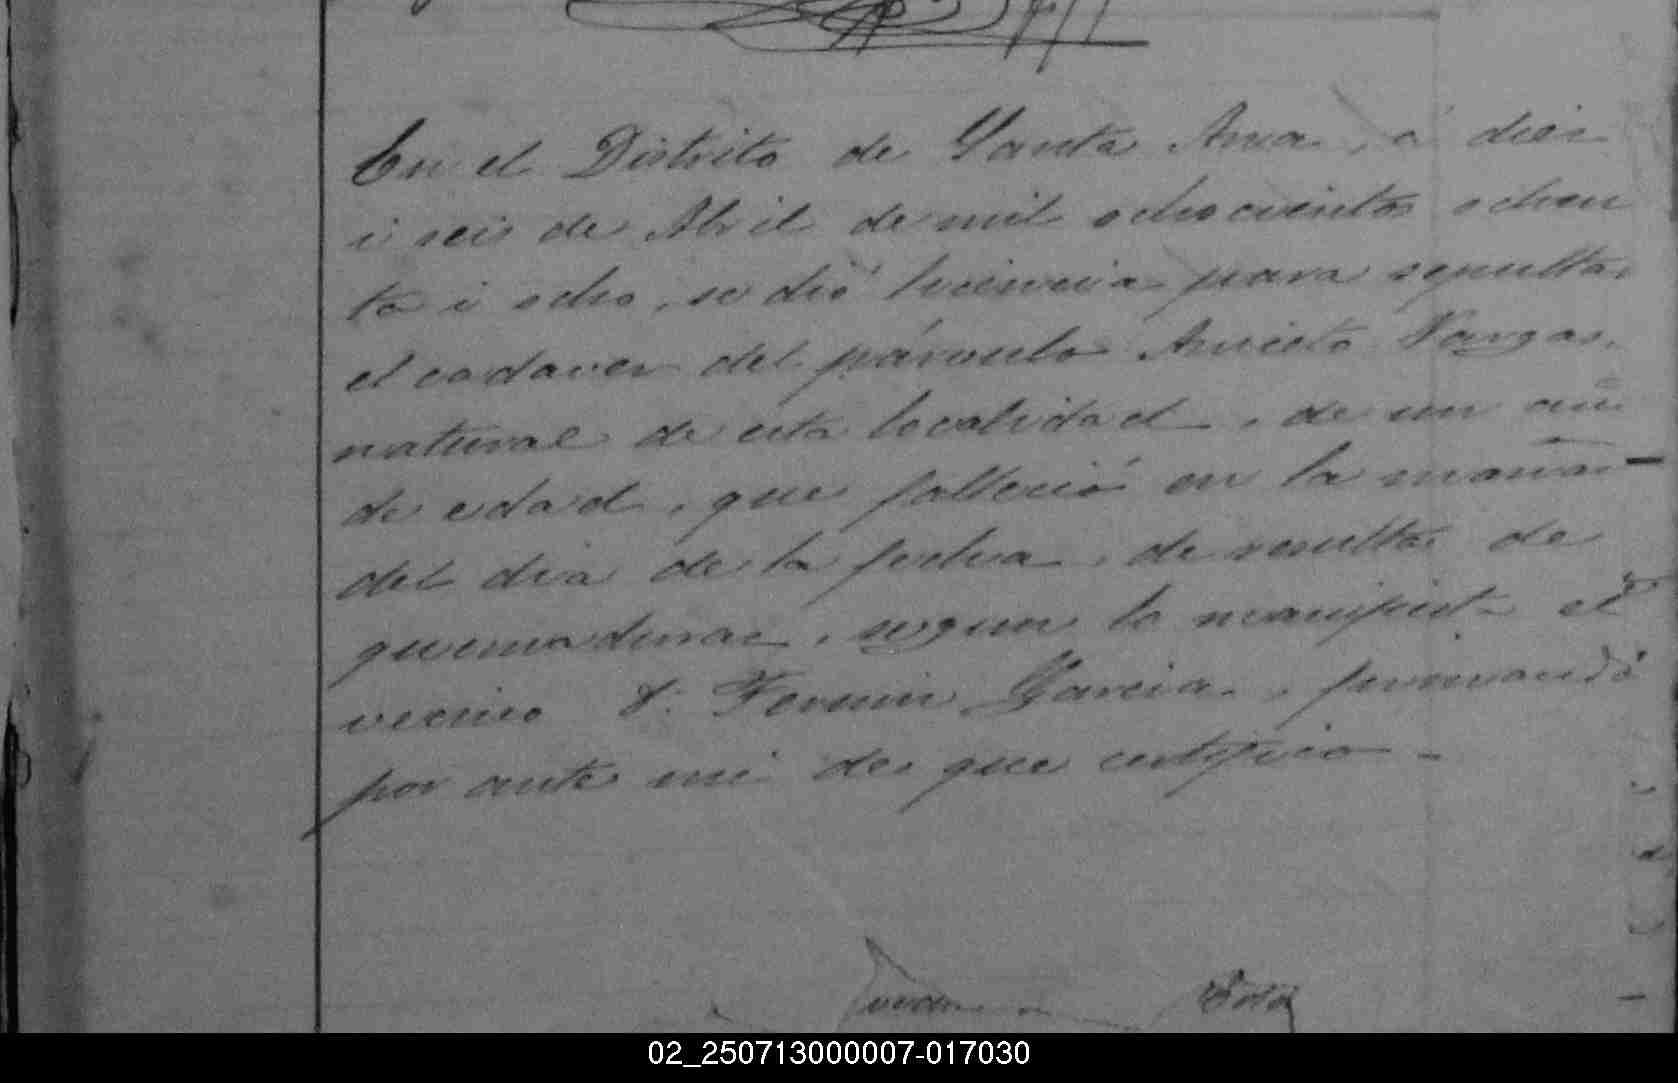 En el Distrito de Santa Ana, á diez
i seis de Abril de mil ochocientos ochen
ta i ocho, se dió licencia para sepultar
el cadaver del párvulo Aniceto Vargas,
natural de esta localidad, de un año
de edad, que falleció en la mañana
del dia de la fecha, de resultas de
quemaduras, segun lo manifiesta el
vecino D. Fermin Garcia, firmando
por ante mi de que certifico -
02_250713000007-017030